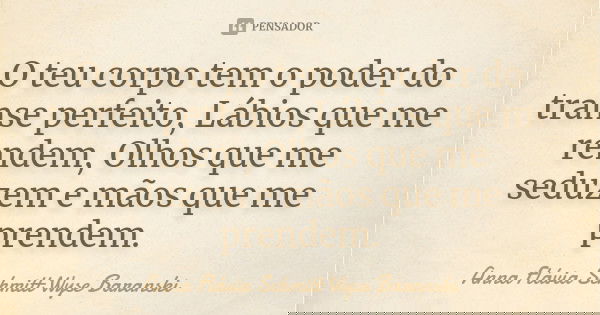 PENSADOR
O teu corpo tem o poder do
transe perfeito, Lábios que me
rendem, Olhos que me
seduzem e mãos que me
prendem.
Anna Flávia Schmitt Wyse Baranski